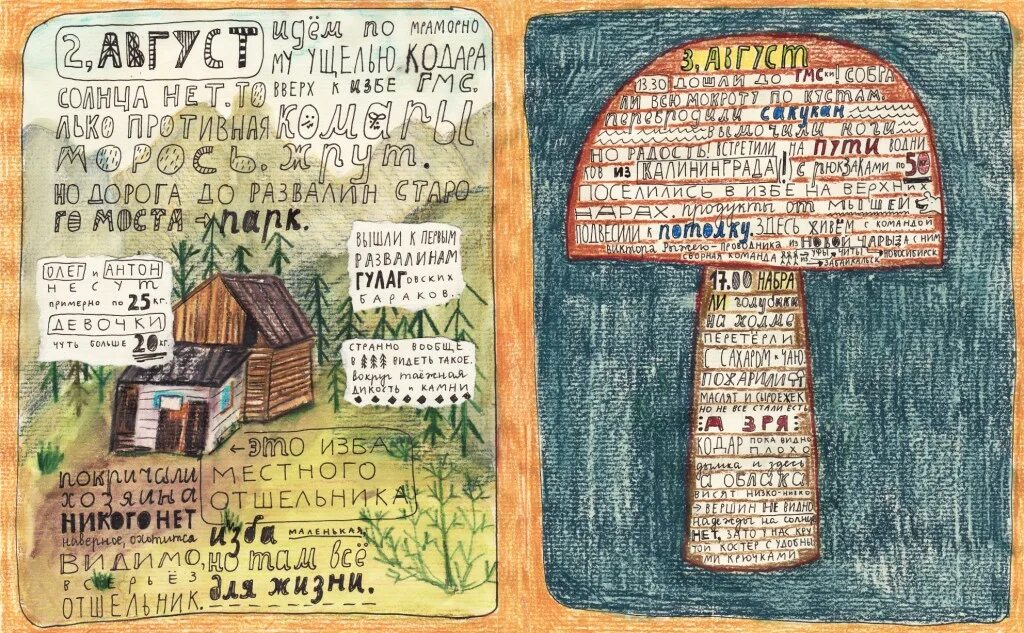 2, АВГУСТ
идём по мраморно
му ущелью Кодара
вверх к избе ГМС.
СОЛНЦА НЕТ. ТО
ЛЬКО ПРОТИВНАЯ
МОРОСЬ.
КОМАРЫ
ЖРУТ.
НО ДОРОГА ДО РАЗВАЛИН СТАРО
ГО МОСТА → парк.
ВЫШЛИ К ПЕРВЫМ
РАЗВАЛИНАМ
ГУЛАГОВСКИХ
БАРАКОВ.
ОЛЕГ и АНТОН
НЕСУТ
примерно по 25 кг.
ДЕВОЧКИ
чуть больше 20 кг.
СТРАННО ВООБЩЕ
В ВИДЕТЬ ТАКОЕ.
вокруг таёжная
дикость и камни
← ЭТО ИЗБА
МЕСТНОГО
ОТШЕЛЬНИКА
покричали
хозяина
НИКОГО НЕТ
наверное, охотится
ВИДИМО,
всерьёз
ОТШЕЛЬНИК.
изба маленькая,
но там всё
для жизни.
3, АВГУСТ
13.30 ДОШЛИ ДО ГМСки! СОБРА
ЛИ ВСЮ МОКРОТУ ПО КУСТАМ.
перебродили сакукан
вымочили ноги
НО РАДОСТЬ! ВСТРЕТИЛИ НА ПУТИ ВОДНИ
КОВ ИЗ КАЛИНИНГРАДА! С РЮКЗАКАМИ ПО 50 кг
ПОСЕЛИЛИСЬ В ИЗБЕ НА ВЕРХНИХ
НАРАХ. продукты от МЫШЕЙ
ПОДВЕСИЛИ К потолку. ЗДЕСЬ ЖИВЁМ С КОМАНДОЙ
Виктора Рыжего - проводника из НОВОЙ ЧАРЫ, а с ним
сборная команда из → УФЫ → ЧИТЫ → НОВОСИБИРСК
→ ЗАБАЙКАЛЬСК
17.00 НАБРА
ЛИ голубики
на холме
ПЕРЕТЁРЛИ
С САХАРОМ К ЧАЮ.
ПОЖАРИЛИ
МАСЛЯТ И СЫРОЕЖЕК
НО НЕ ВСЕ СТАЛИ ЕСТЬ
А ЗРЯ
КОДАР ПОКА ВИДНО
ПЛОХО
дымка и здесь
а облака
ВИСЯТ НИЗКО-НИЗКО
→ ВЕРШИН НЕ ВИДНО
надежды на солнце
НЕТ, ЗАТО У НАС КРУ
ТОЙ КОСТЁР С УДОБНЫ
МИ КРЮЧКАМИ